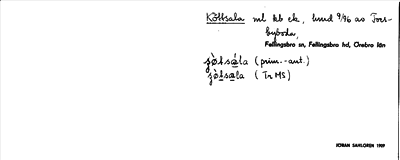 Köttsala ml kb ek, hmd 9/96 av Tors-
byboda,
Fellingsbro sn, Fellingsbro hd, Örebro län
(prim.-ant.)
(Tr MS)
JOHAN SAHLGREN 1959